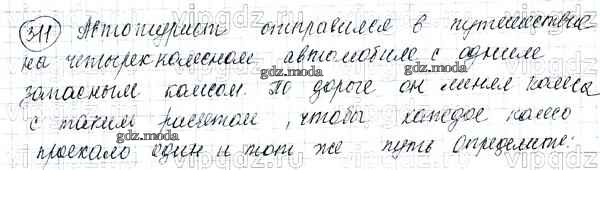 311 Автотурист отправился в путешествие
на четырехколесном автомобиле с одним
запасным колесом. По дороге он менял колеса
с таким расчетом, чтобы каждое колесо
проехало один и тот же путь Определите:
gdz.moda
gdz.moda
gdz.moda
gdz.moda
gdz.moda
vipgdz.vip